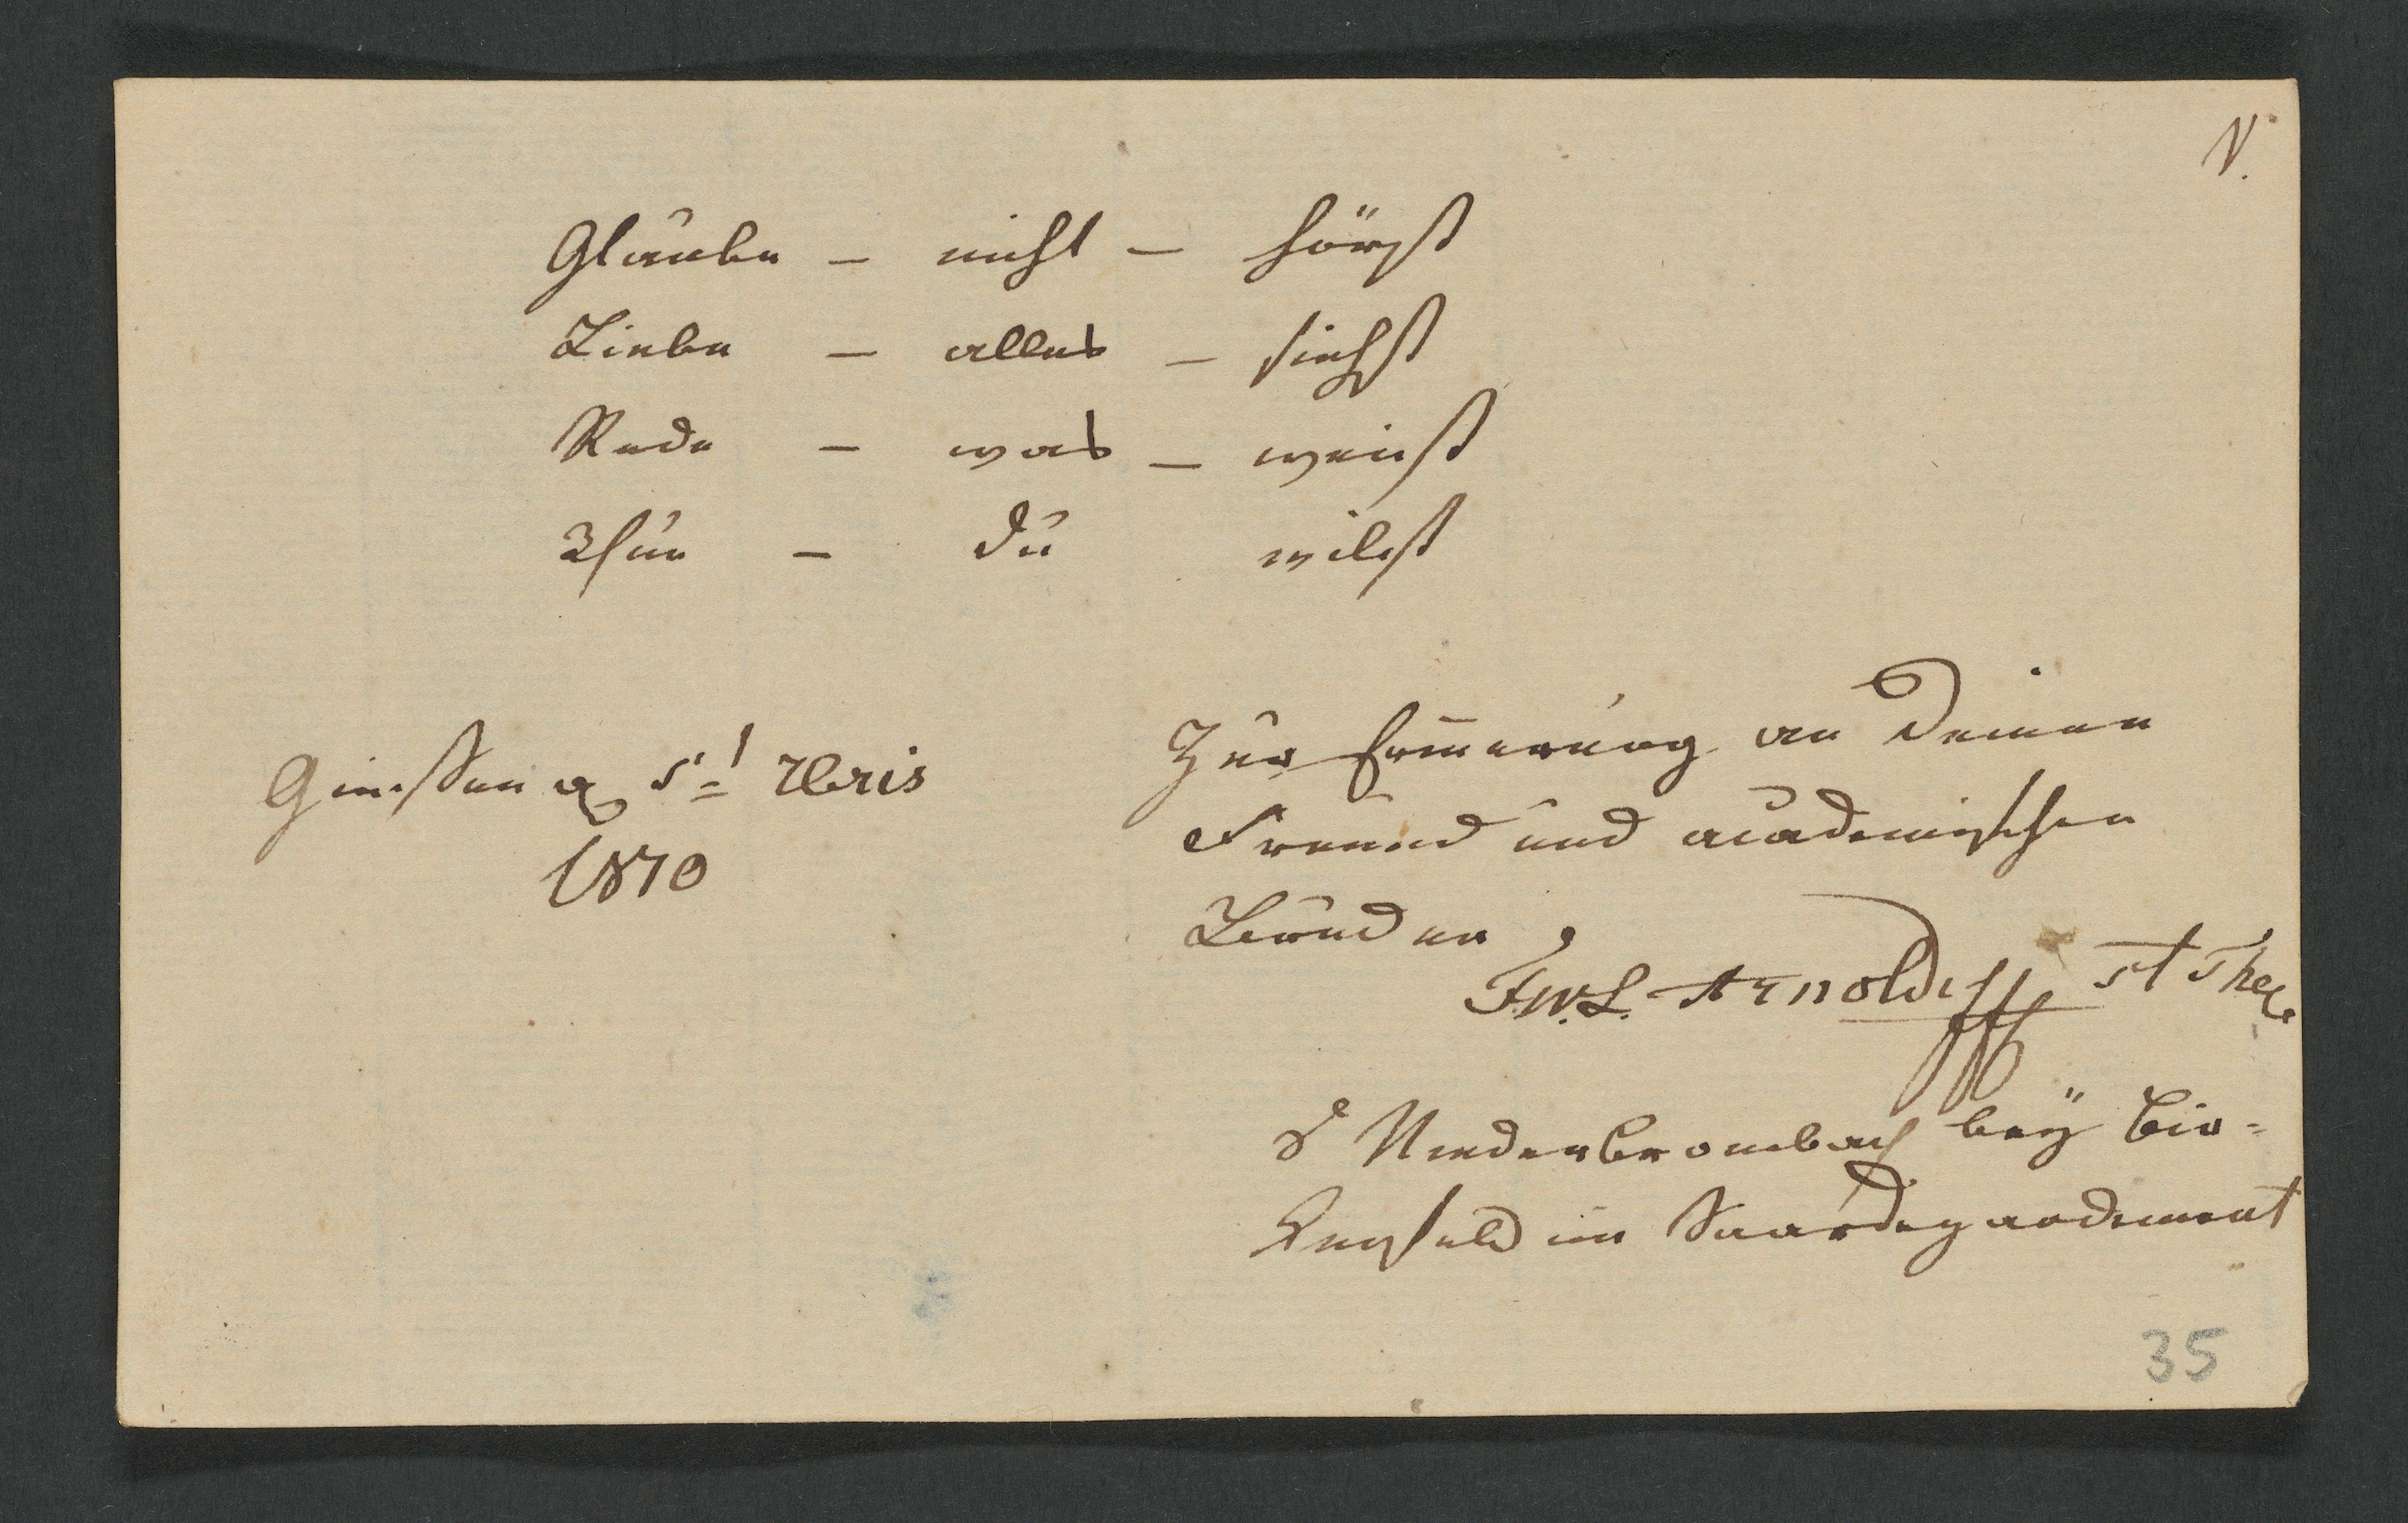 V.
Glaube – nicht – hörst
Liebe – alles – siehst
Rede – was – weist
Thue – du wilst
Giessen 7bris
1810
Zur Erinnerung an Deinen
Freund und academischen
Bruder
F.W.L. Arnoldi St Theol.
Niederbrombach beÿ Bir-
kenfeld im Saardepardement
35